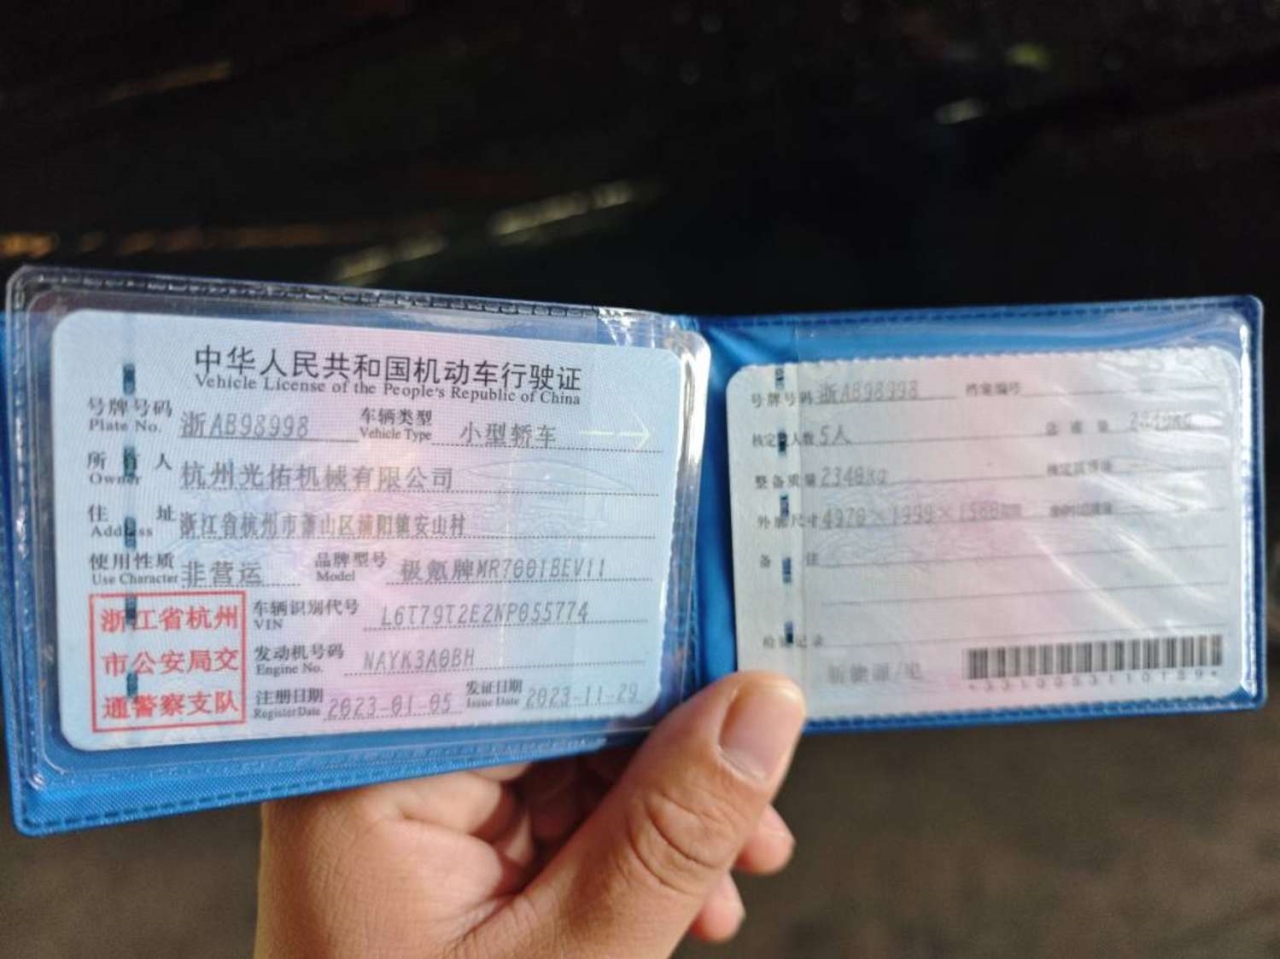 中华人民共和国机动车行驶证
Vehicle License of the People's Republic of China
号牌号码 浙AB98998 车辆类型 小型轿车
Plate No. Vehicle Type
所 人 杭州光佑机械有限公司
Owner
住 址 浙江省杭州市萧山区浦阳镇安山村
Address
使用性质 非营运 品牌型号 极氪牌MR7001BEV11
Use Character Model
浙江省杭州
市公安局交
通警察支队
车辆识别代号 L6T79T2E2NP055774
VIN
发动机号码 NAYK3A0BH
Engine No.
注册日期 2023-01-05 发证日期 2023-11-29
Register Date Issue Date
号牌号码 浙AB98998 档案编号
核定 人数 5人 总质量
整备质量 2348kg 核定载质量
外廓尺寸 4970×1999×1560mm
备 注
检验记录